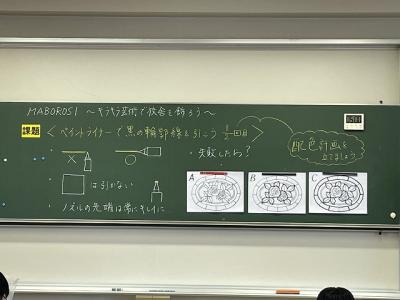 MABOROSI 〜キラキラ芸術で校舎を飾ろう〜
課題 <ペイントライナーで黒の輪郭線を引こう 1/2回目>
配色計画を立てましょう
・失敗したら?
は引かない
ノズルの先端は常にキレイに
A B C